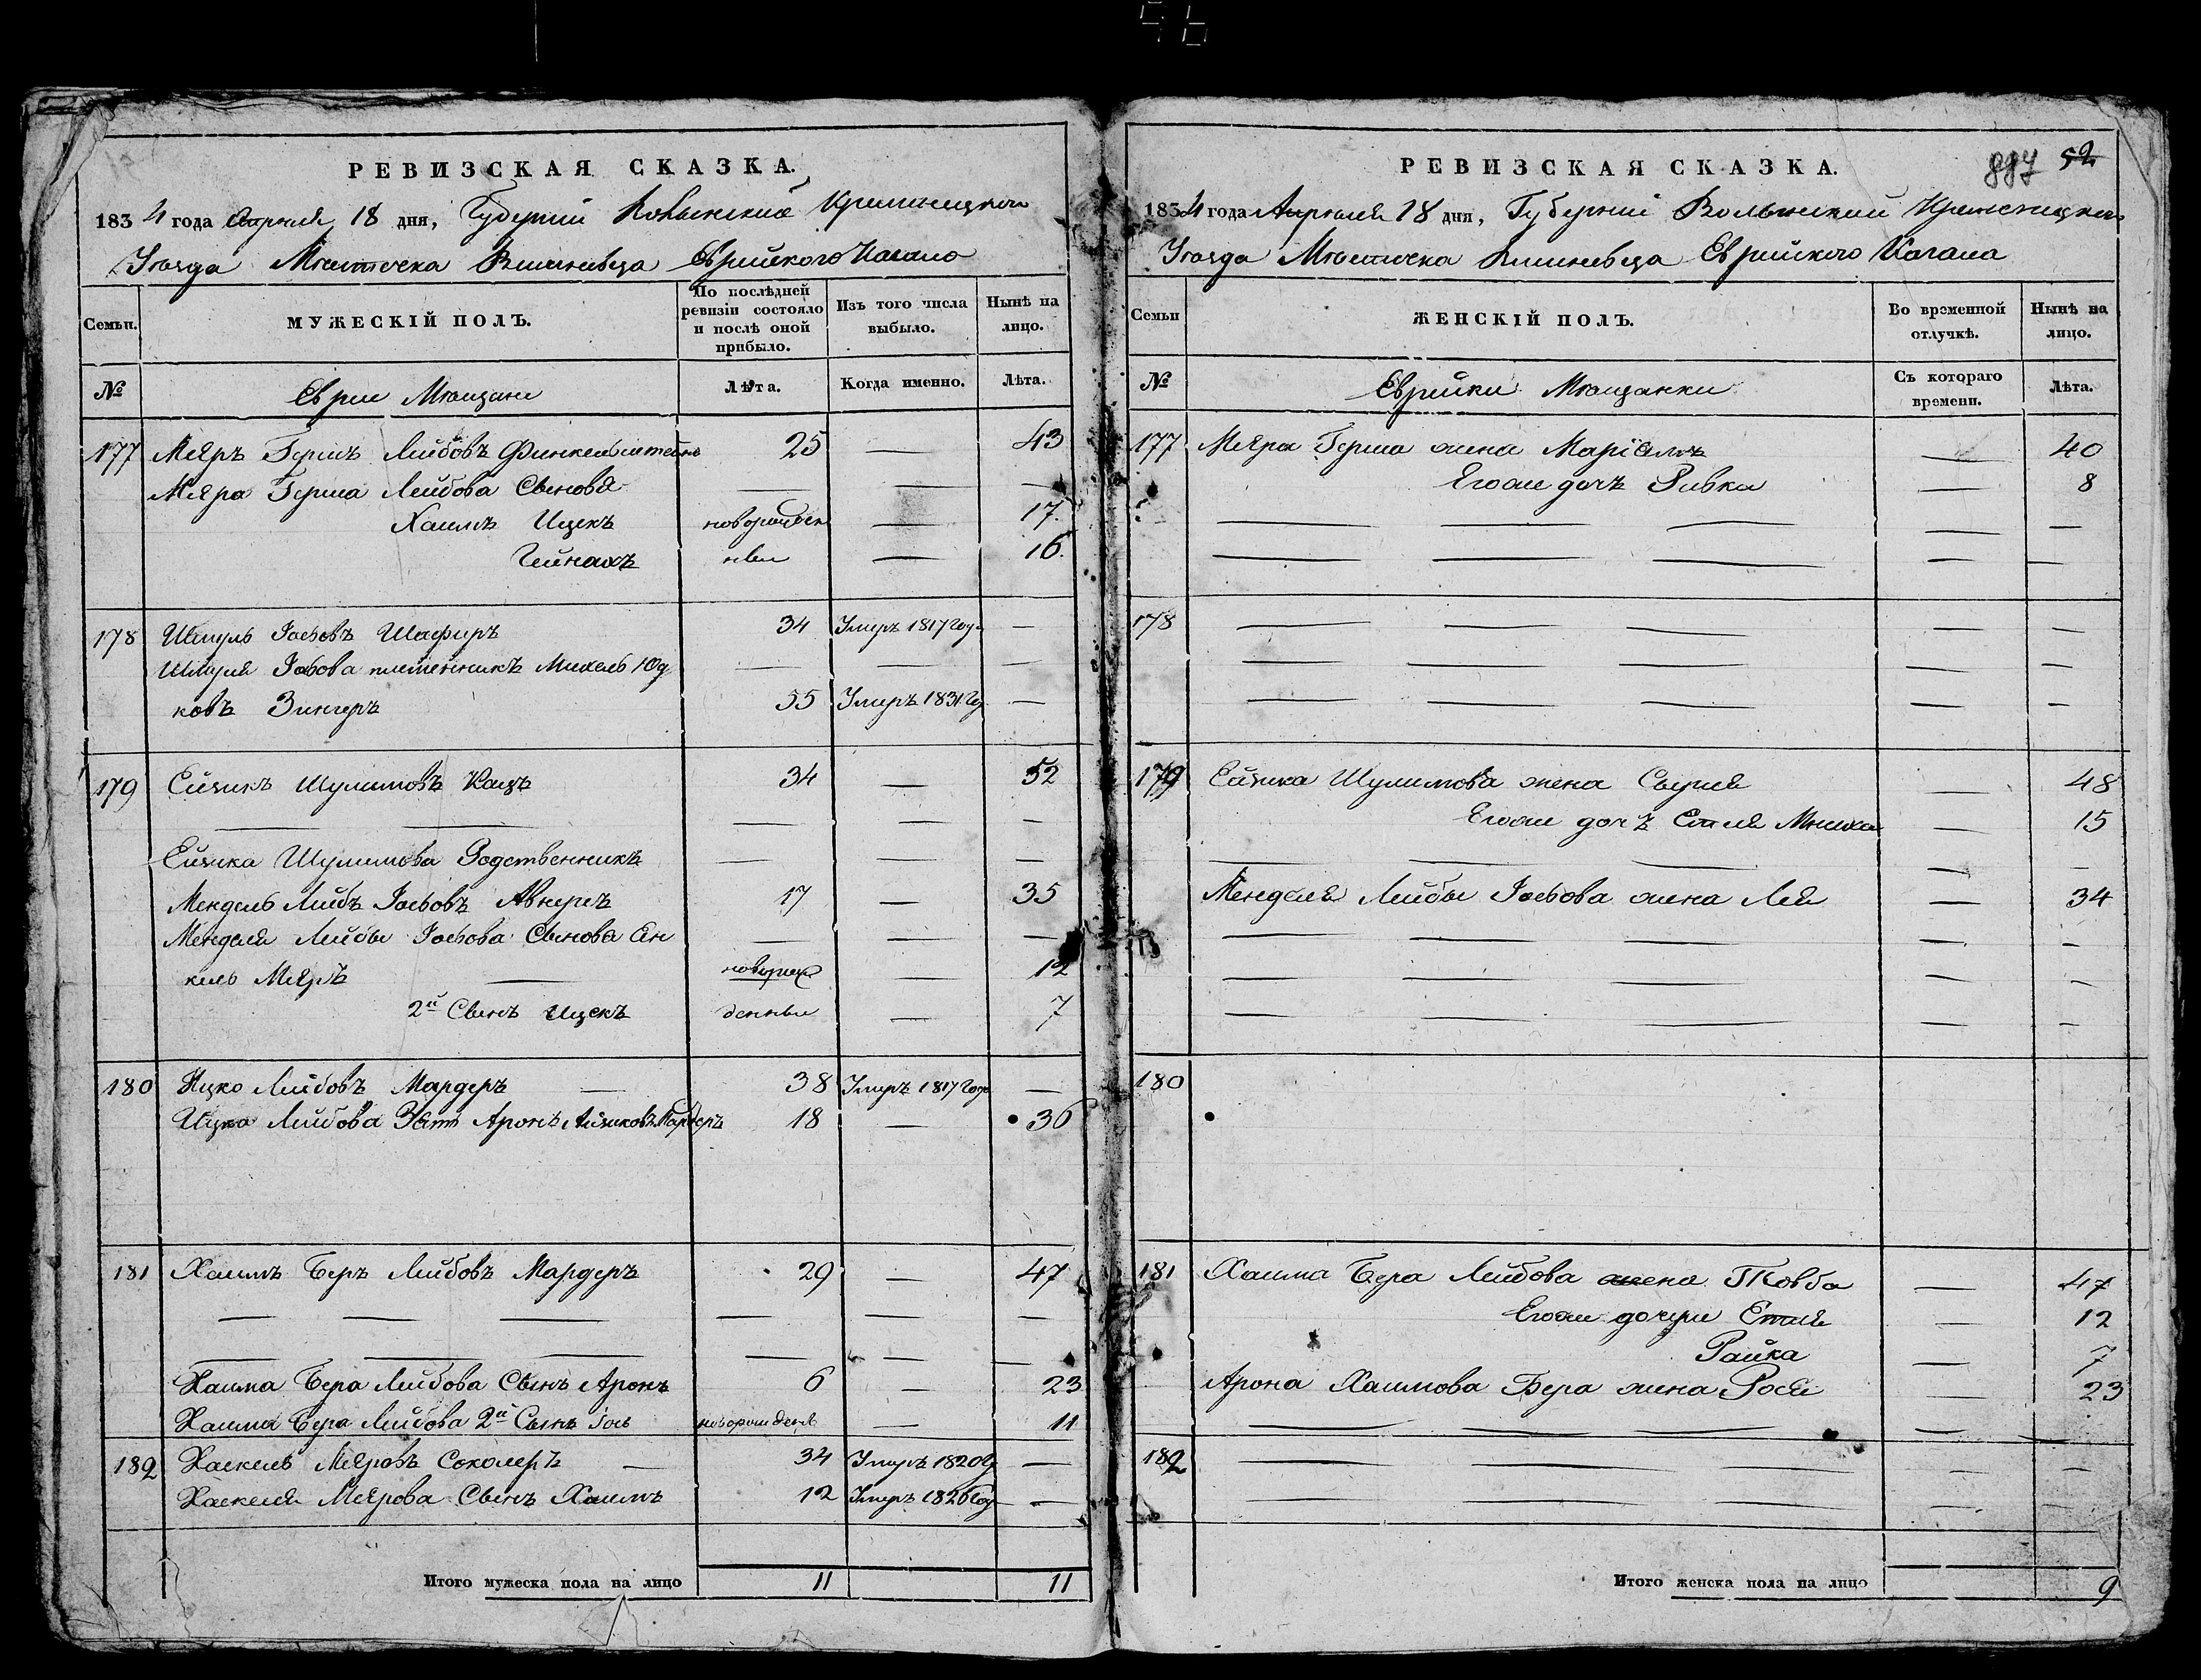 РЕВИЗСКАЯ СКАЗКА.
1834 года Апрѣля 18 дня, Губерніи Волынской Кременецкого
Уѣзда Мѣстечка Вишневца Еврейского Кагала
Семьи. МУЖЕСКІЙ ПОЛЪ. По послѣдней ревизіи состояло и послѣ оной прибыло. Изъ того числа выбыло. Нынѣ на лицо.
№ Евреи Мѣщане Лѣта. Когда именно. Лѣта.
177 Меяръ Гершъ Лейбовъ Финкельштейнъ 25 — 43
Меяра Герша Лейбова Сыновя — — —
Хаимъ Ицекъ новорожден — 17.
Гейнахъ ныи — 16.
178 Шмуль Іосьовъ Шафиръ 34 Умеръ 1817 Году —
Шмуля Іосьова племенникъ Михель Юд — — —
ковъ Зингеръ 55 Умеръ 1831 Го —
179 Ейзикъ Шулимовъ Кацъ 34 — 52
— — — — —
Ейзика Шулимова Родственникъ — — —
Мендель Лейбъ Іосьовъ Авнеръ 17 — 35
Менделя Лейбы Іосьова Сыновя Ян — — —
кель Меяръ — новорож — 12
2й Сынъ Ицекъ денныи — 7
180 Ицко Лейбовъ Мардеръ — 38 Умеръ 1817 Году —
Ицка Лейбова Зять Аронъ Айзиковъ Мардеръ 18 — 36
181 Хаимъ Беръ Лейбовъ Мардеръ 29 — 47
— — — — — —
— — — — — —
Хаима Бера Лейбова Сынъ Аронъ 6 — 23
Хаима Бера Лейбова 2й Сынъ Іось новорожденъ — 11
182 Хаскель Меяровъ Соколеръ — 34 Умеръ 1820 —
Хаскеля Меярова Сынъ Хаимъ 12 Умеръ 1826 Году —
Итого мужеска пола на лицо 11 11
887 52
РЕВИЗСКАЯ СКАЗКА.
1834 года Апрѣля 18 дня, Губерніи Волынской Кременецкого
Уѣзда Мѣстечка Вишневца Еврейского Кагала
Семьи ЖЕНСКІЙ ПОЛЪ. Во временной отлучкѣ. Нынѣ на лицо.
№ Еврейки Мѣщанки Съ котораго времени. Лѣта.
177 Меяра Герша жена Маріямъ — 40
Егоже дочъ Ривка — 8
— — — — —
— — — — —
178 — — — — —
— — — — —
— — — — —
179 Ейзика Шулимова жена Сырля — 48
Егоже дочъ Естля — 15
— — — — —
Менделя Лейбы Іосьова жена Лея — 34
— — — — —
— — — — —
— — — — —
180
181 Хаима Бера Лейбова жена Товба — 47
Егоже дочери Естля — 12
Райка — 7
Арона Хаимова Бера жена Рося — 23
— — — — —
182 — — — — —
— — — — —
Итого женска пола на лицо 9